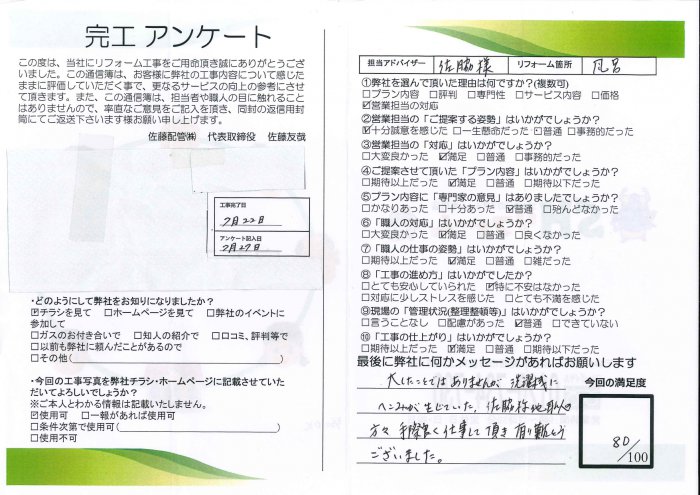 完工 アンケート
この度は、当社にリフォーム工事をご用命頂き誠にありがとうござ
いました。この通信簿は、お客様に弊社の工事内容について感じた
ままに評価していただく事で、更なるサービスの向上の参考にさせ
て頂きます。また、この通信簿は、担当者や職人の目に触れること
はありませんので、率直なご意見をご記入を頂き、同封の返信用封
筒にてご返送下さいます様お願い申し上げます。
佐藤配管㈱ 代表取締役 佐藤友哉
工事完了日
7月22日
アンケート記入日
7月27日
・どのようにして弊社をお知りになりましたか？
☑チラシを見て □ホームページを見て □弊社のイベントに
参加して
□ガスのお付き合いで □知人の紹介で □口コミ、評判等で
□以前も弊社に頼んだことがあるので
□その他( )
・今回の工事写真を弊社チラシ・ホームページに記載させていた
だいてよろしいでしょうか？
※ご本人とわかる情報は記載いたしません。
☑使用可 □一報があれば使用可
□条件次第で使用可( )
□使用不可
担当アドバイザー 佐脇様 リフォーム箇所 風呂
①弊社を選んで頂いた理由は何ですか？(複数可)
□プラン内容 □評判 □専門性 □サービス内容 □価格
☑営業担当の対応
②営業担当の「ご提案する姿勢」はいかがでしょうか？
☑十分誠意を感じた □一生懸命だった □普通 □事務的だった
③営業担当の「対応」はいかがでしょうか？
□大変良かった ☑満足 □普通 □事務的だった
④ご提案させて頂いた「プラン内容」はいかがでしょうか？
□期待以上だった ☑満足 □普通 □期待以下だった
⑤プラン内容に「専門家の意見」はありましたでしょうか？
□かなりあった □十分あった ☑普通 □殆んどなかった
⑥「職人の対応」はいかがでしょうか？
□大変良かった ☑満足 □普通 □良くなかった
⑦「職人の仕事の姿勢」はいかがでしょうか？
□期待以上だった ☑満足 □普通 □雑だった
⑧「工事の進め方」はいかがでしたか？
□とても安心していられた ☑特に不安はなかった
□対応に少しストレスを感じた □とても不満を感じた
⑨現場の「管理状況(整理整頓等)」はいかがでしょうか？
□言うことなし □配慮があった ☑普通 □できていない
⑩「工事の仕上がり」はいかがでしょうか？
□期待以上だった ☑満足 □普通 □期待以下だった
最後に弊社に何かメッセージがあればお願いします
大したことではありませんが 洗濯機に
へこみが生じていた。佐脇様他職人の
方々 手際良く仕事して頂き 有り難とう
ございました。
今回の満足度
80
/100